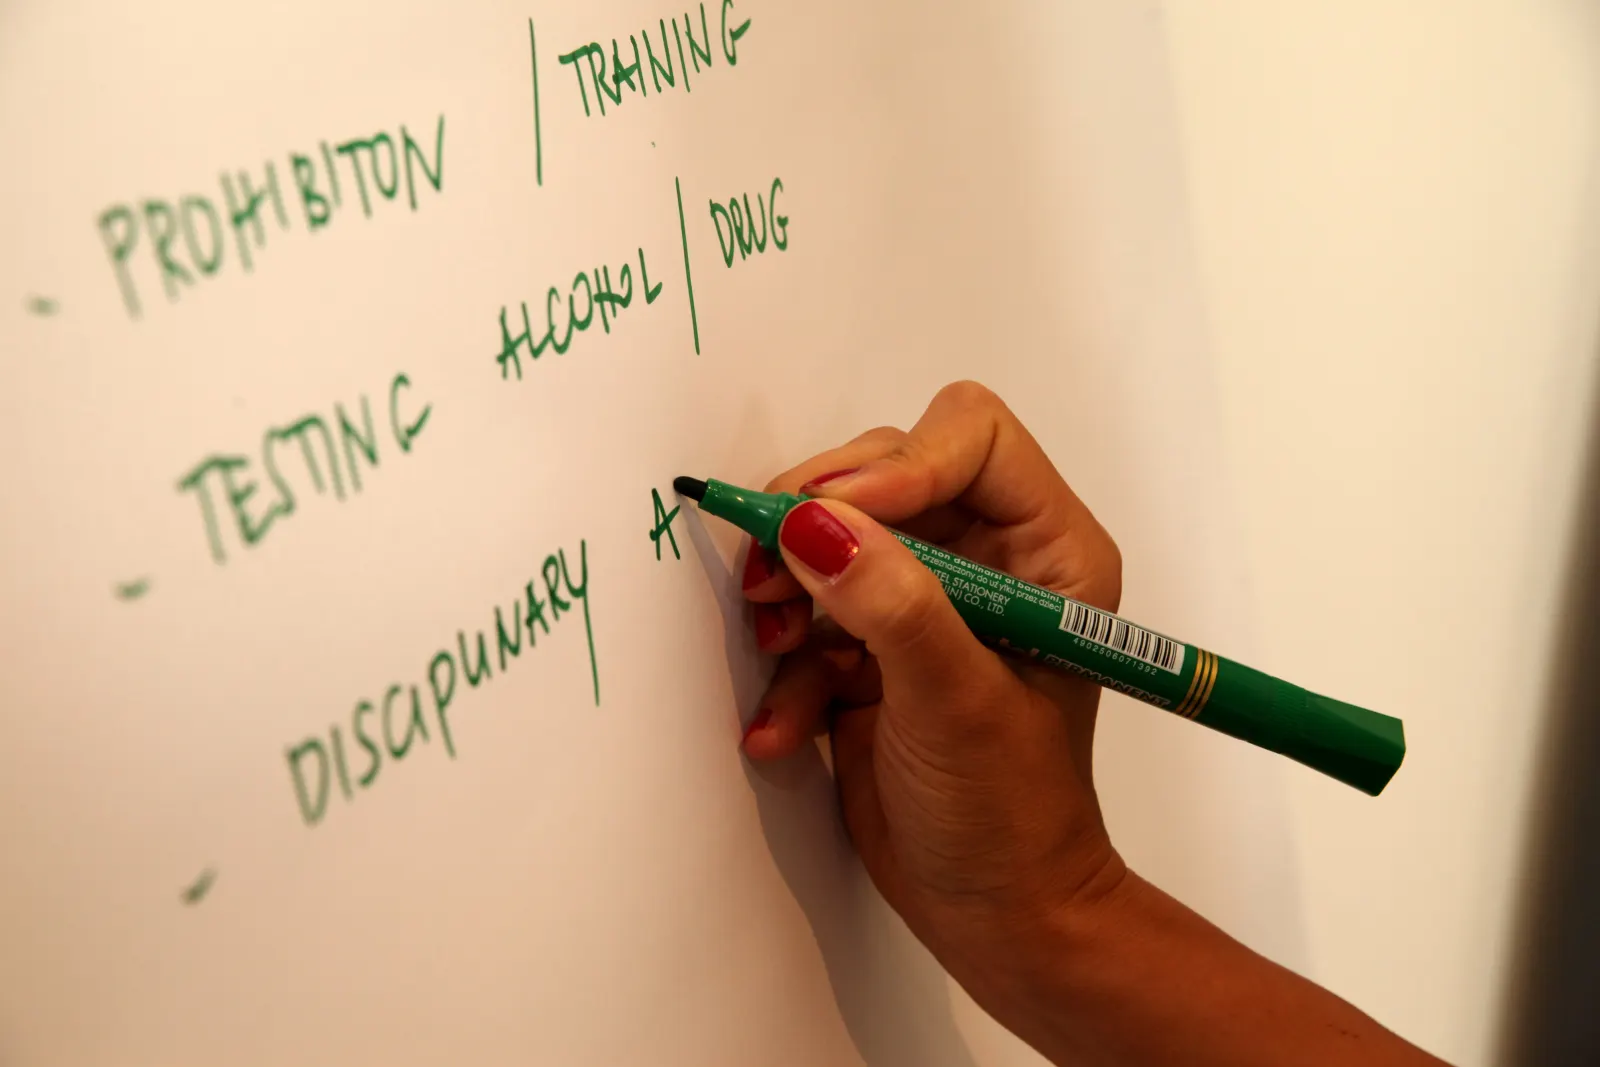 - PROHIBITON / TRAINING
- TESTING ALCOHOL / DRUG
- DISCIPLINARY A
otto da non destinarsi ai bambini.
est przeznaczony do użytku przez dzieci
NTEL STATIONERY
CO., LTD.
4902506071392
PERMANENT